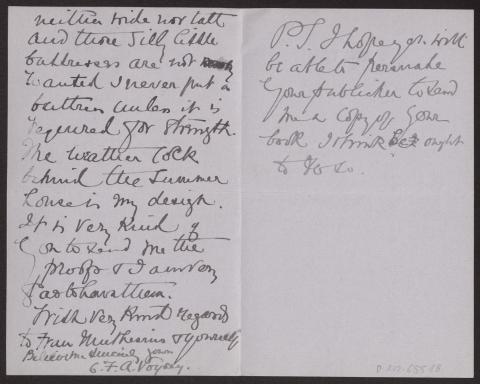 neither wide nor tall
and those silly little
buttresses are not
wanted I never put a
buttress unless it is
required for strength.
The weather cock
behind the summer
house is my design.
It is very kind of
you to send me the
proofs & I am very
glad to have them.
With very kind regards
to Frau Muthesius & yourself
Believe me sincerely yours
C. F. A. Voysey.
P.S. I hope you will
be able to persuade
your publisher to send
me a copy of your
book I think he ought
to do so.